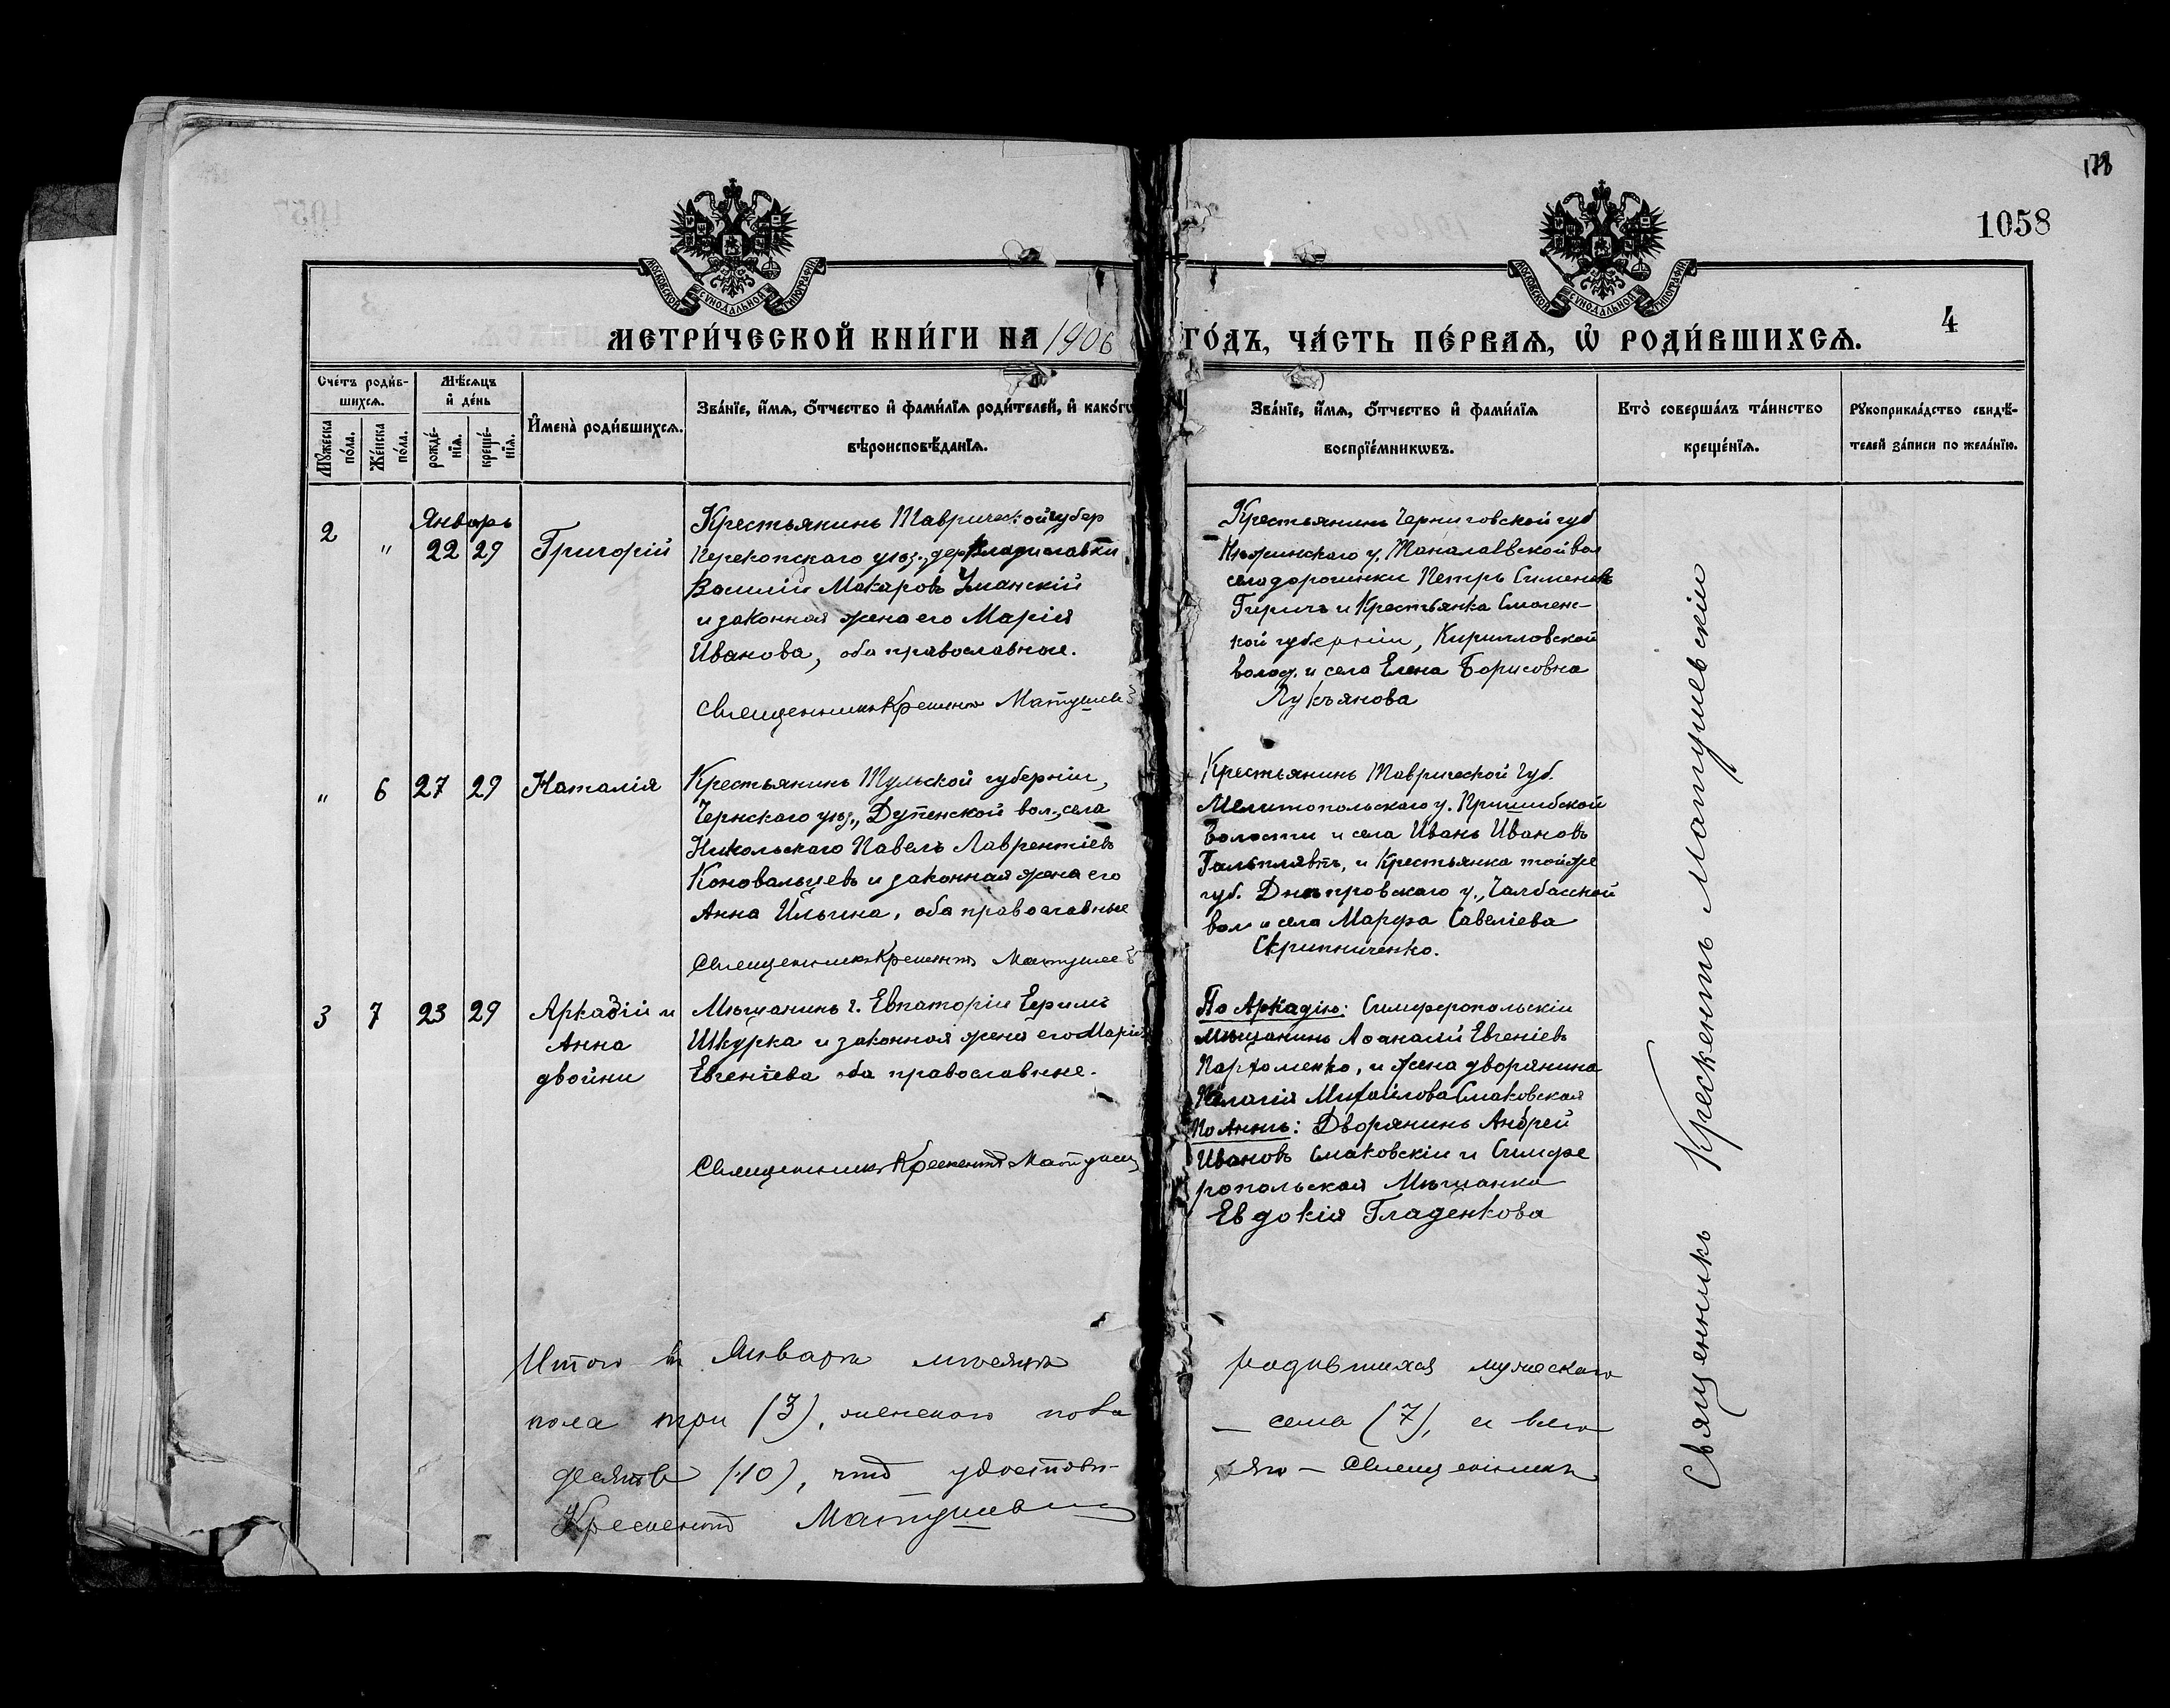 1058
4
МОСКОВСКОЙ СѴНОДАЛЬНОЙ ТИПОГРАФІИ
МОСКОВСКОЙ СѴНОДАЛЬНОЙ ТИПОГРАФІИ
МЕТРИ́ЧЕСКОЙ КНИ́ГИ НА 1906 ГО́ДЪ, ЧА́СТЬ ПЕ́РВАѦ, Ѡ҆ РОДИ́ВШИХСѦ.
Сче́тъ роди́в-
шихсѧ.
Мꙋ́жеска по́ла.
Же́нска по́ла.
Мѣ́сѧцъ
и҆ де́нь
рожде́-
нїѧ.
креще́-
нїѧ.
И҆мена̀ роди́вшихсѧ.
Зва́нїе, и҆́мѧ, ѻ҆́тчество и҆ фами́лїѧ роди́телей, и҆ како́гѡ
вѣроисповѣ́данїѧ.
Зва́нїе, и҆́мѧ, ѻ҆́тчество и҆ фами́лїѧ
воспрїе́мникѡвъ.
Кто̀ соверша́лъ та́инство
креще́нїѧ.
Рꙋкоприкла́дство свидѣ́-
телей за́писи по жела́нїю.
2 " Январь
22 29 Григорій
Крестьянинъ Таврической губер
Перекопскаго уѣз., дер Владиславки
Василій Макаровъ Уманскій
и законная жена его Марія
Иванова, оба православные.
Священникъ Крескентъ Матушев
Крестьянинъ Черниговской губ
Нѣжинскаго у. вол
села дорогинки Петръ Сименовъ
Гиричъ и Крестьянка Смолен-
кой губерніи, Кирилловской
волод. и села Елена Борисовна
Лукьянова
" 6 27 29 Наталія
Крестьянинъ Тульской губерніи,
Чернскаго уѣз., Дупенской вол., села
Никольскаго Павелъ Лаврентіевъ
Коновальцевъ и законная жена его
Анна Ильина, оба православные
Священникъ Крескентъ Матушев
Крестьянинъ Таврической Губ.
Мелитопольскаго у. Пришибской
Волости и села Иванъ Ивановъ
и Крестьянка той же
губ. Днѣпровскаго у., Чалбасской
вол и села Марфа Савеліева
Скрипниченко.
3 7 23 29 Аркадій и
Анна
двойни
Мѣщанинъ г. Евпаторіи Ефимъ
Шкурка и законная жена его Марія
Евгеніева оба православные.
Священникъ Крескентъ Матушев
По Аркадію: Симферопольскій
мѣщанинъ Аѳанасій Евгеніевъ
Пархоменко, и жена дворянина
Пелагія Михайлова Смаковская
По Аннѣ: Дворянинъ Андрей
Ивановъ Смаковскій и Симфе
ропольская Мѣщанка
Евдокія Гладенкова
Священникъ Крескентъ Матушевскій
Итого въ Январѣ мѣсяцѣ родившихся мужескаго
пола три (3), женскаго пола — семь (7), а всего
десять (10), что удостовѣ-
ряю — Священникъ
Крескентъ Матушевскій